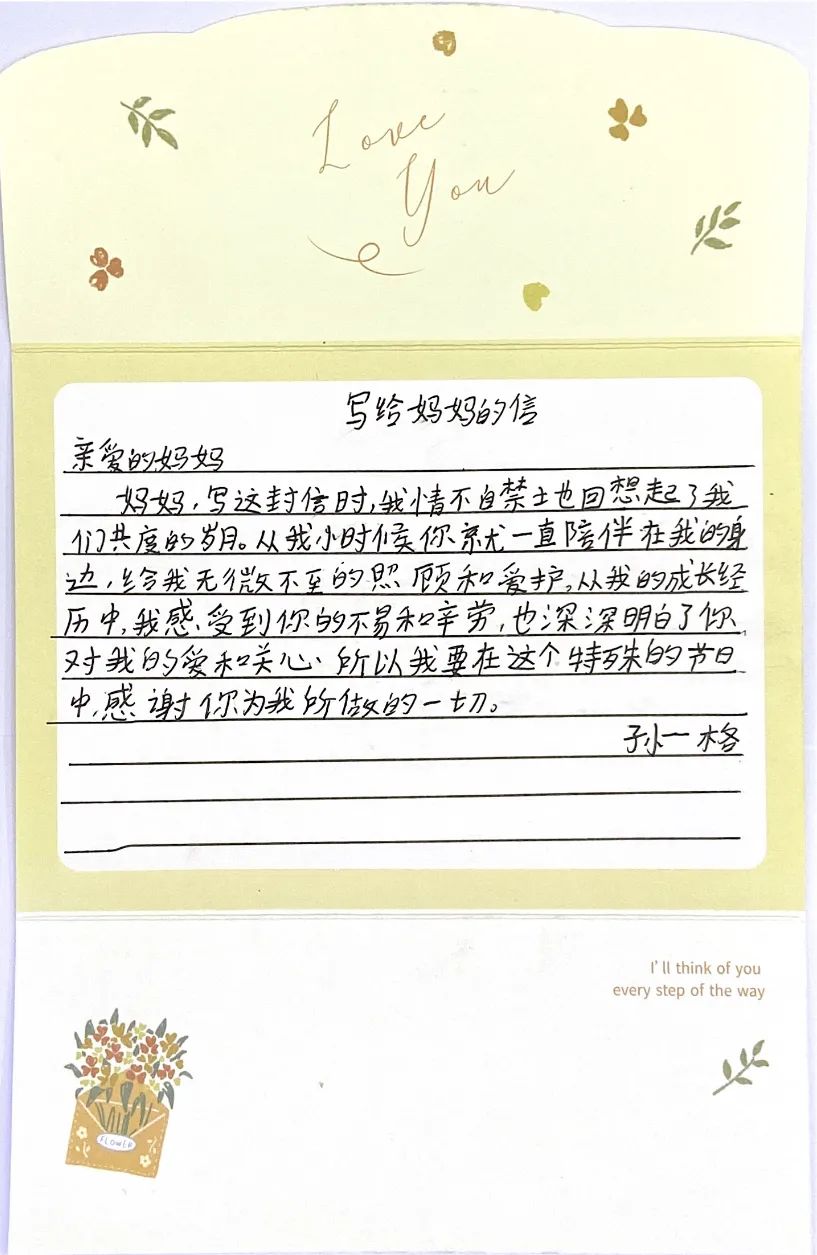 Love
You
写给妈妈的信
亲爱的妈妈
妈妈，写这封信时，我情不自禁土也回想起了我
们共度的岁月。从我小时候你就一直陪伴在我的身
边，给我无微不至的照顾和爱护，从我的成长经
历中，我感受到你的不易和辛劳，也深深明白了你
对我的爱和关心、所以我要在这个特殊的节日
中，感谢你为我所做的一切。
孙一格
I'll think of you
every step of the way
FLOWER